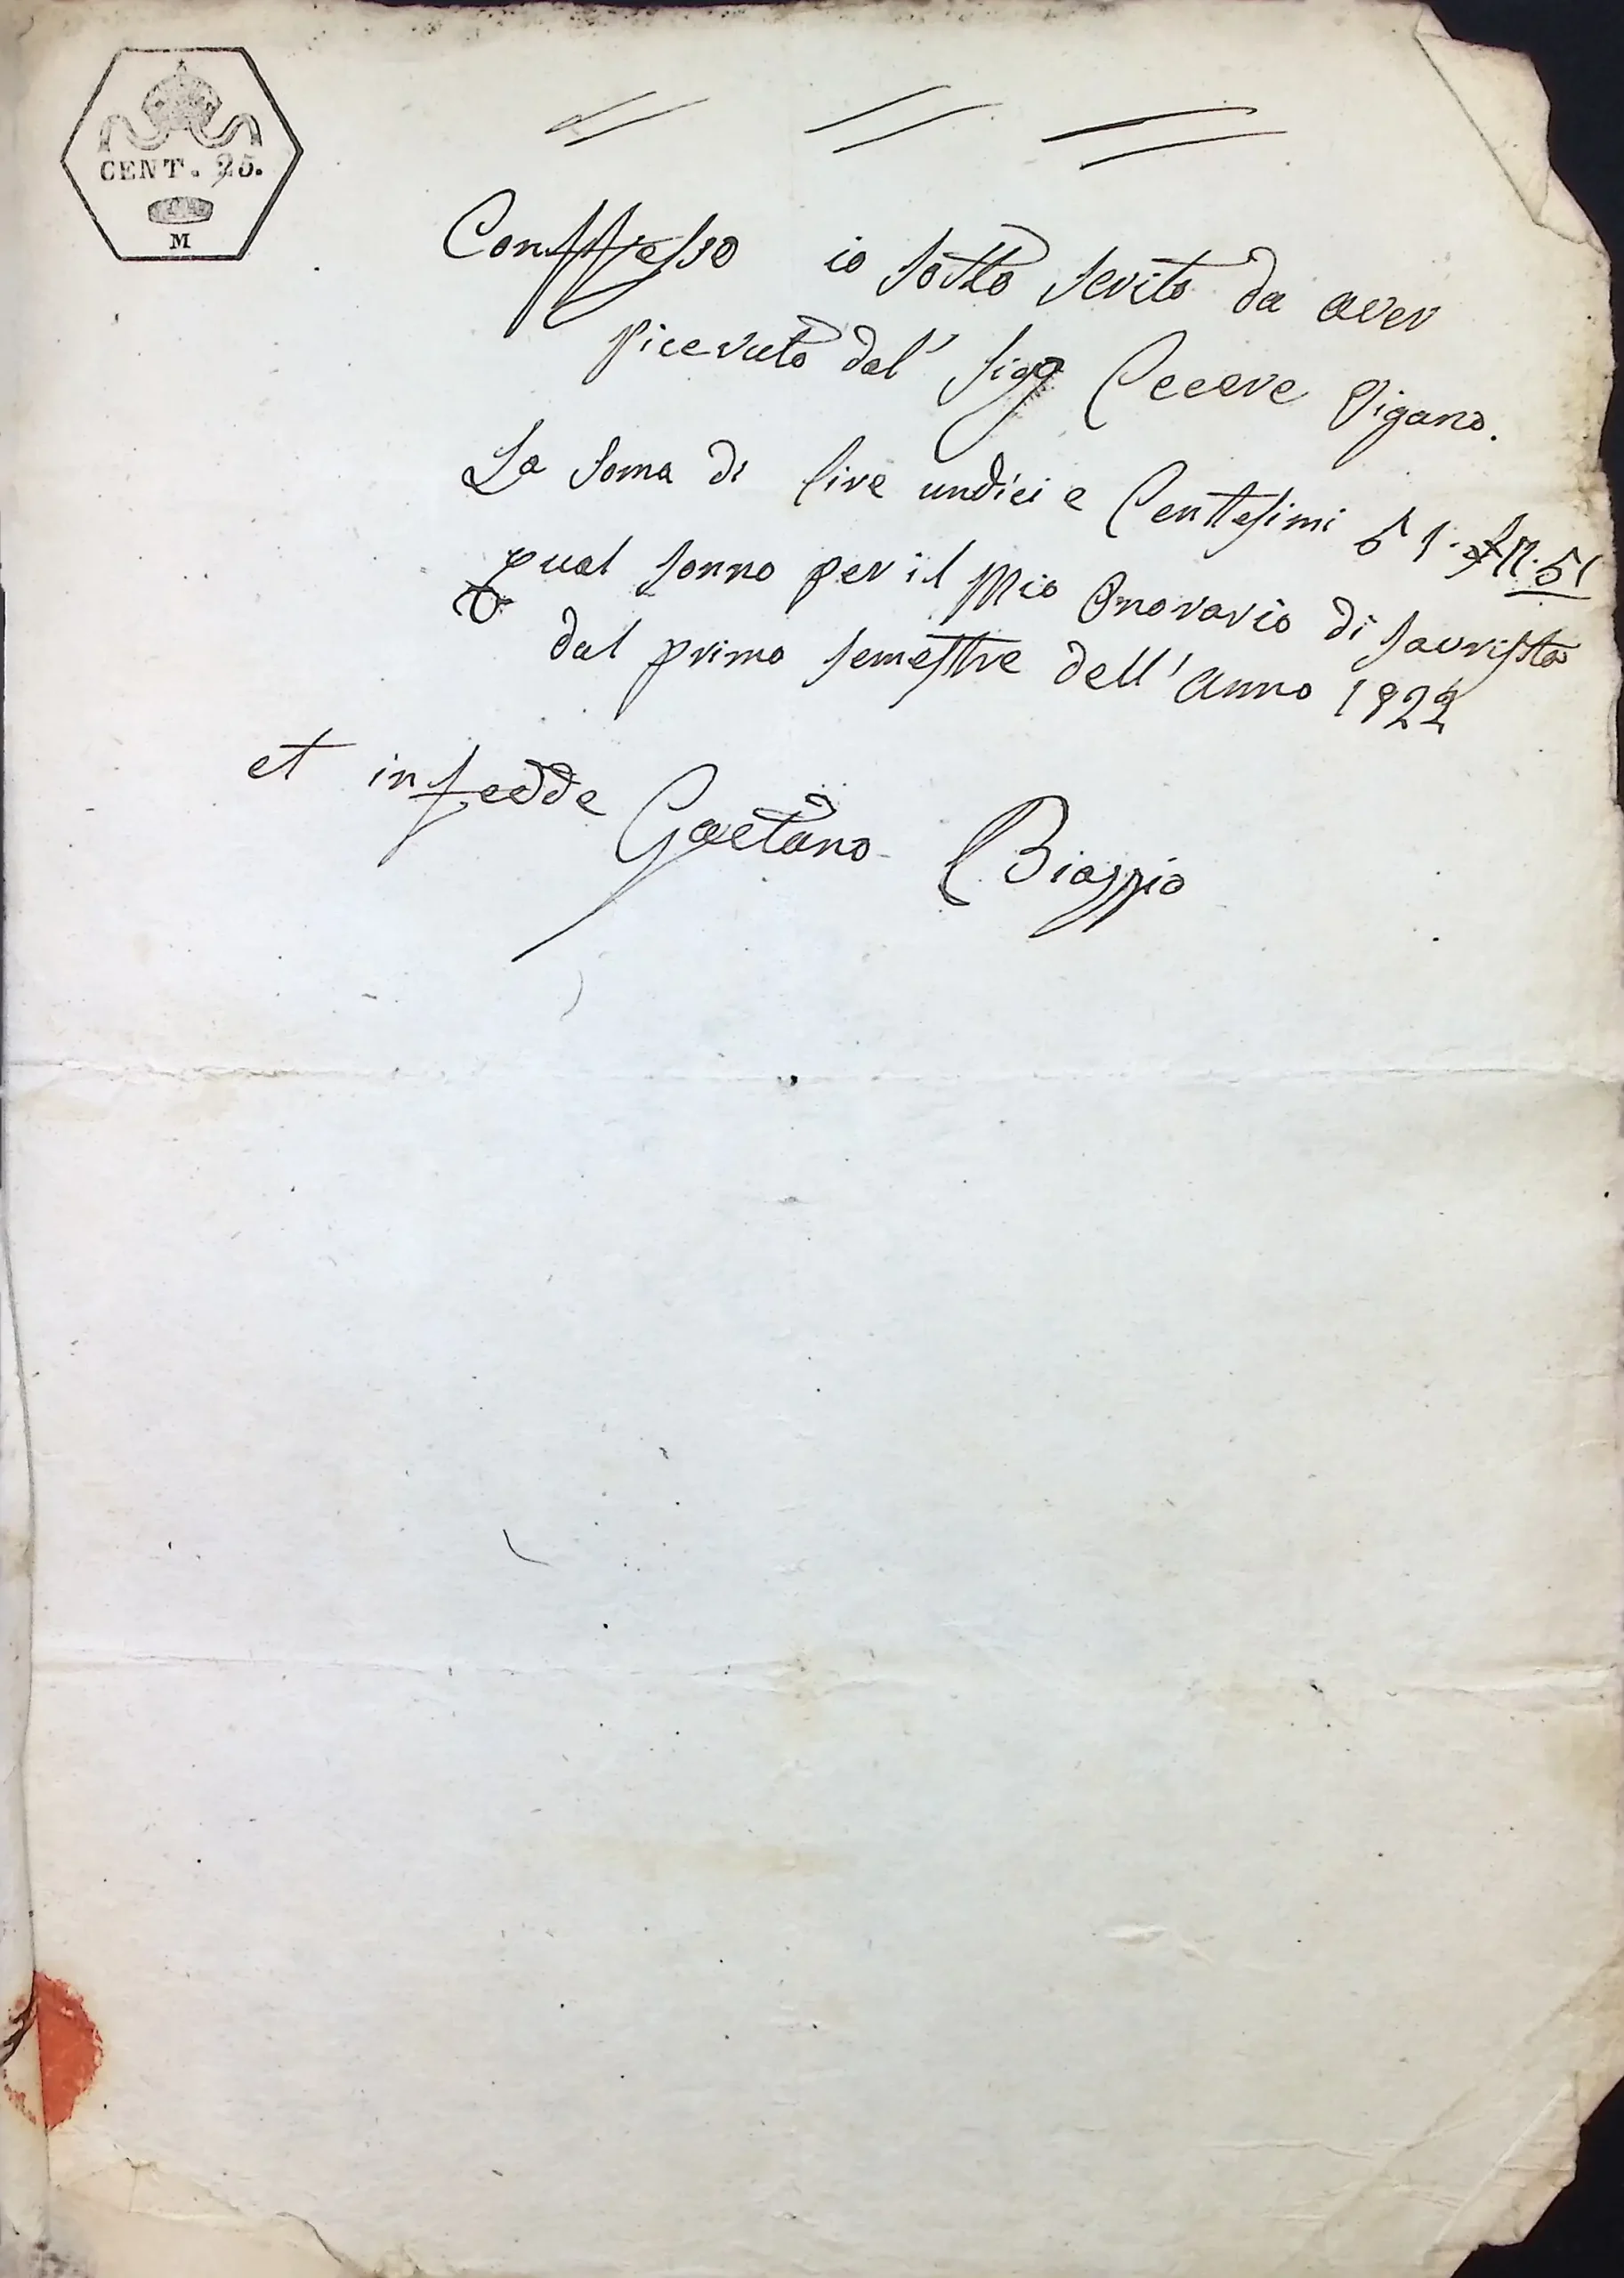 CENT. 25.
M
Confesso io sotto scrito da aver
ricevuto dal' sigr Vigano.
La soma di lire undici e Centesimi 51. 11.51
qual sonno per il Mio Onorario di sacrista
dal primo semestre dell' anno 1822
et in fedde Gaetano Biaggio